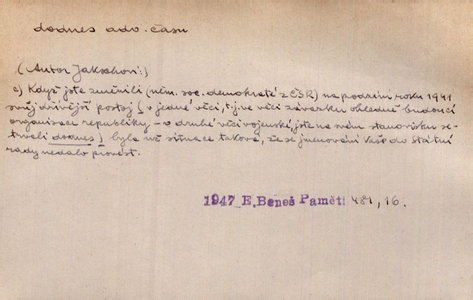 dodnes adv. času
(Autor Jakschovi:)
c) Když jste změnili (něm. soc. demokraté z ČSR) na podzim roku 1941
svůj dřívější postoj (v jedné věci, t.j. ve věci závazku ohledně budoucí
organisace republiky – v druhé věci vojenské, jste na svém stanovisku se-
trvali dodnes) byla už situace taková, že se jmenování Vaše do Státní
rady nedalo provést.
1947 E. Beneš Paměti 481, 16.